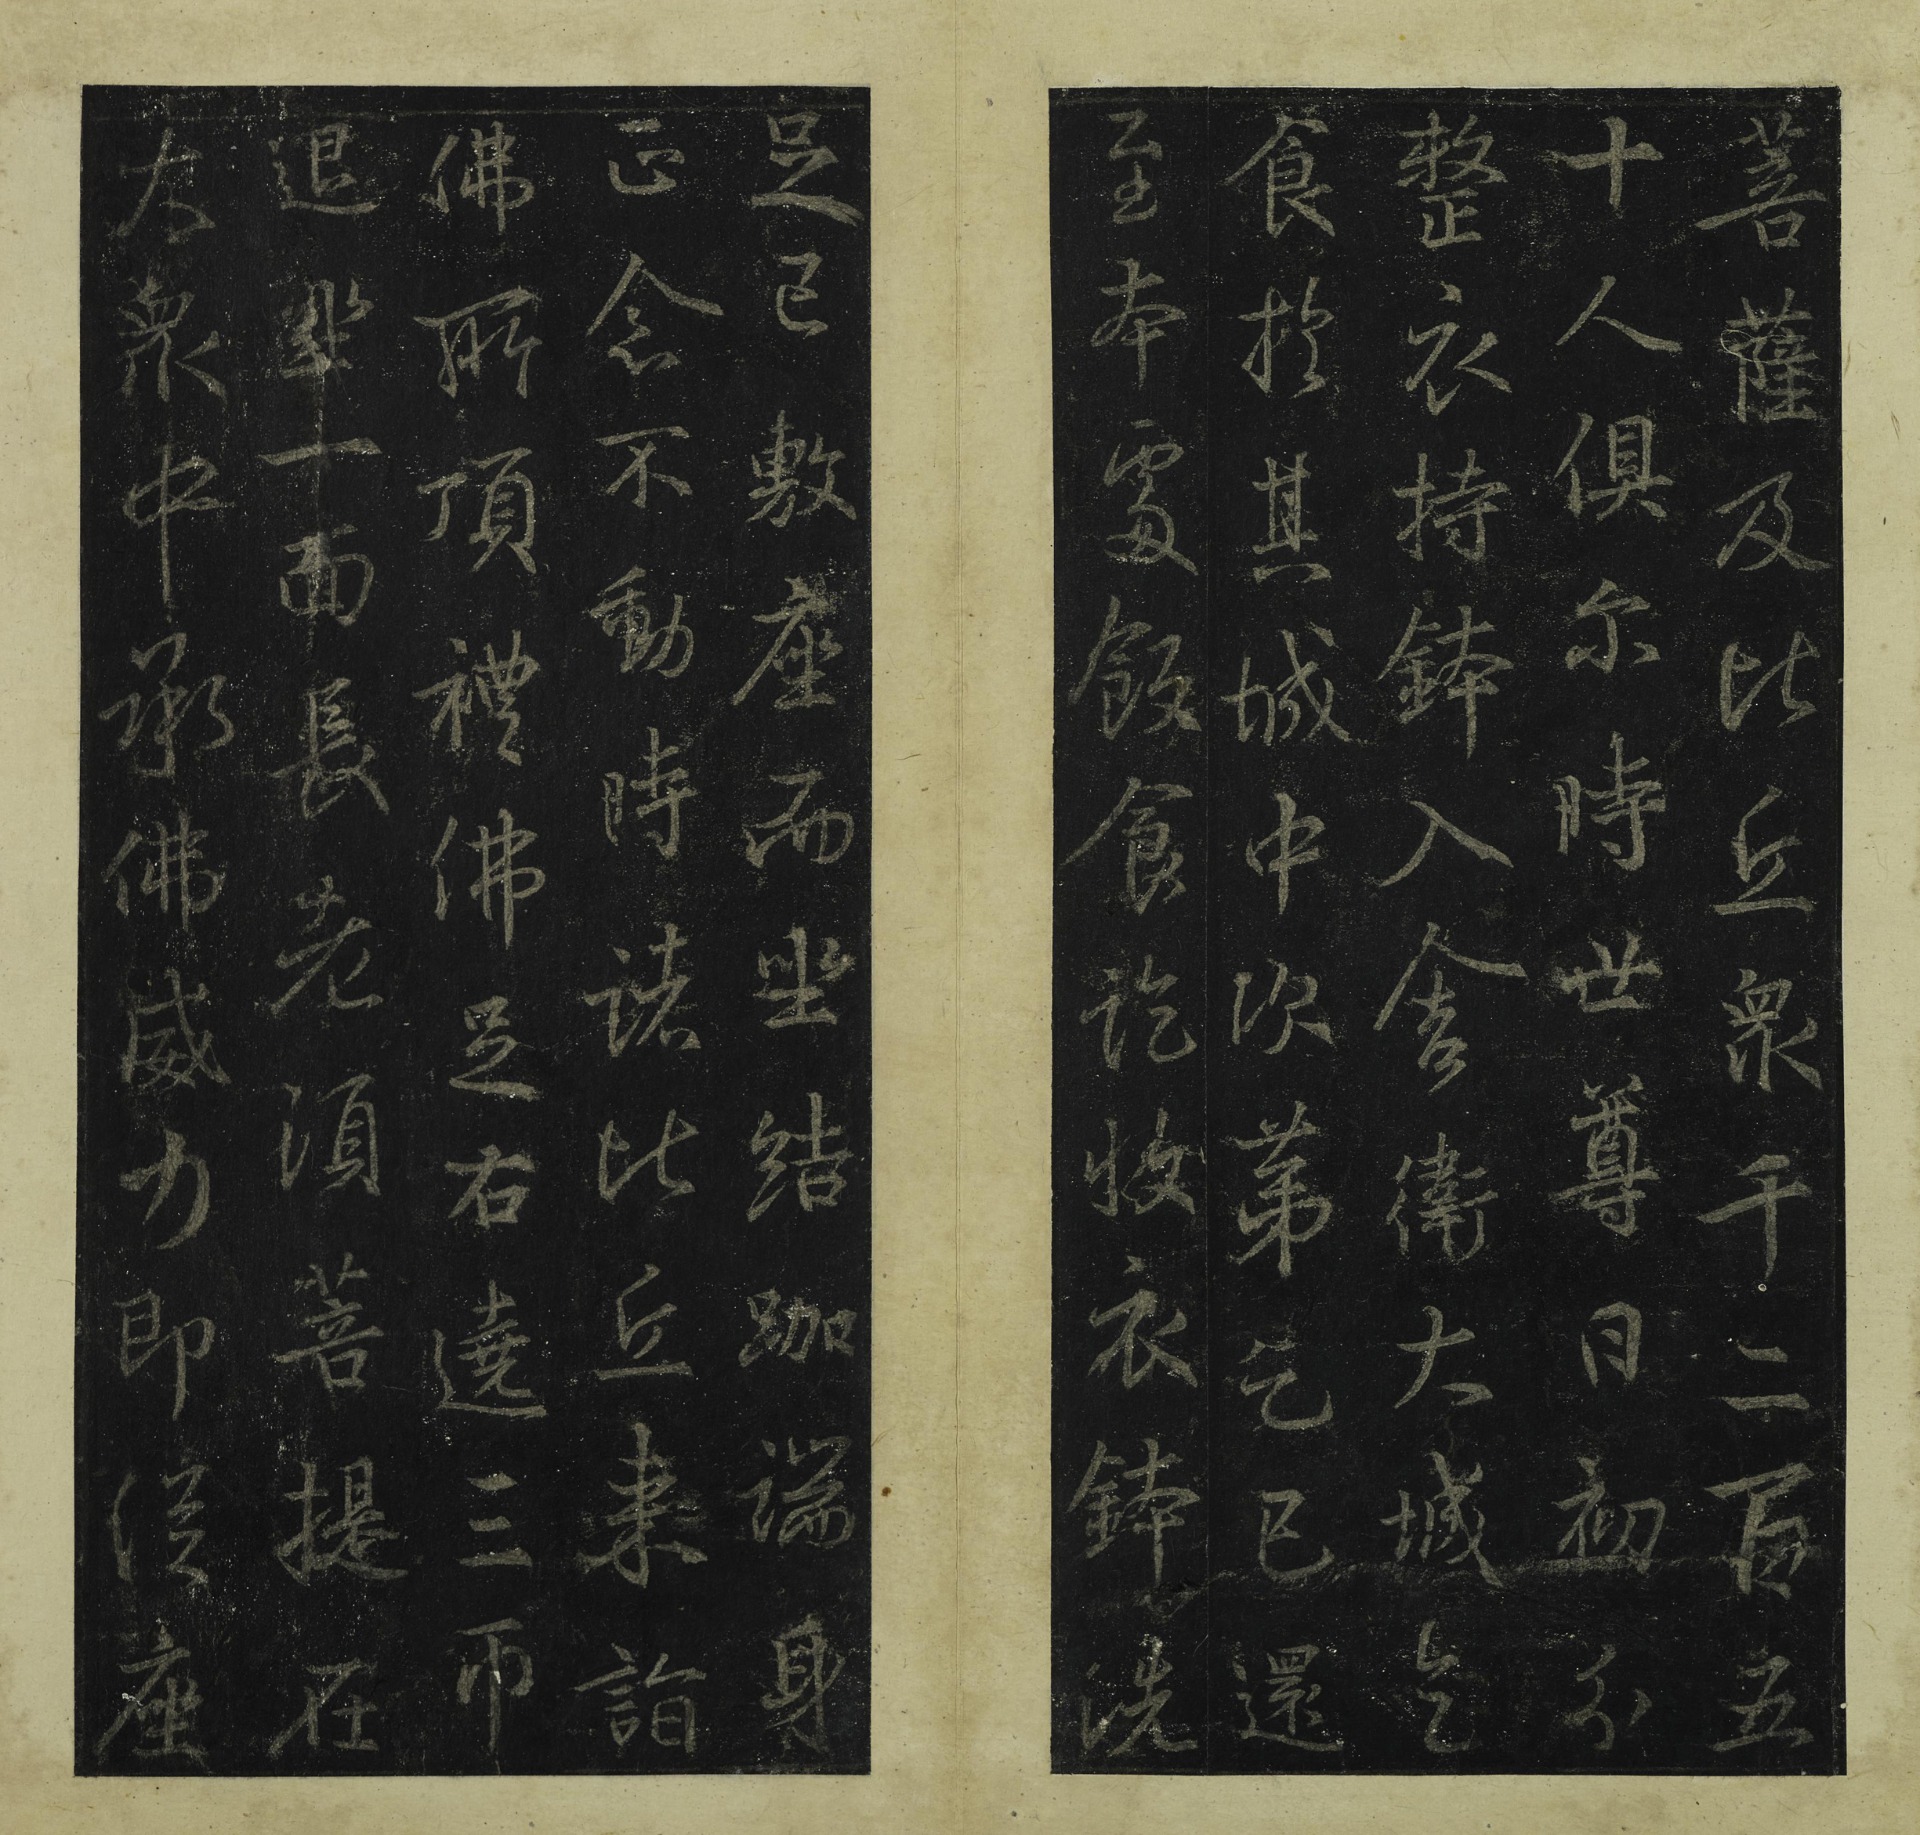 菩薩及比丘衆千二百五
十人俱尔時世尊日初分
整衣持鉢入舍衛大城乞
食於其城中次第乞已還
至本處飯食訖收衣鉢洗
足已敷座而坐結跏端身
正念不動時諸比丘来詣
佛所頂禮佛足右遶三帀
退坐一面長老湏菩提在
大衆中承佛威力即從座